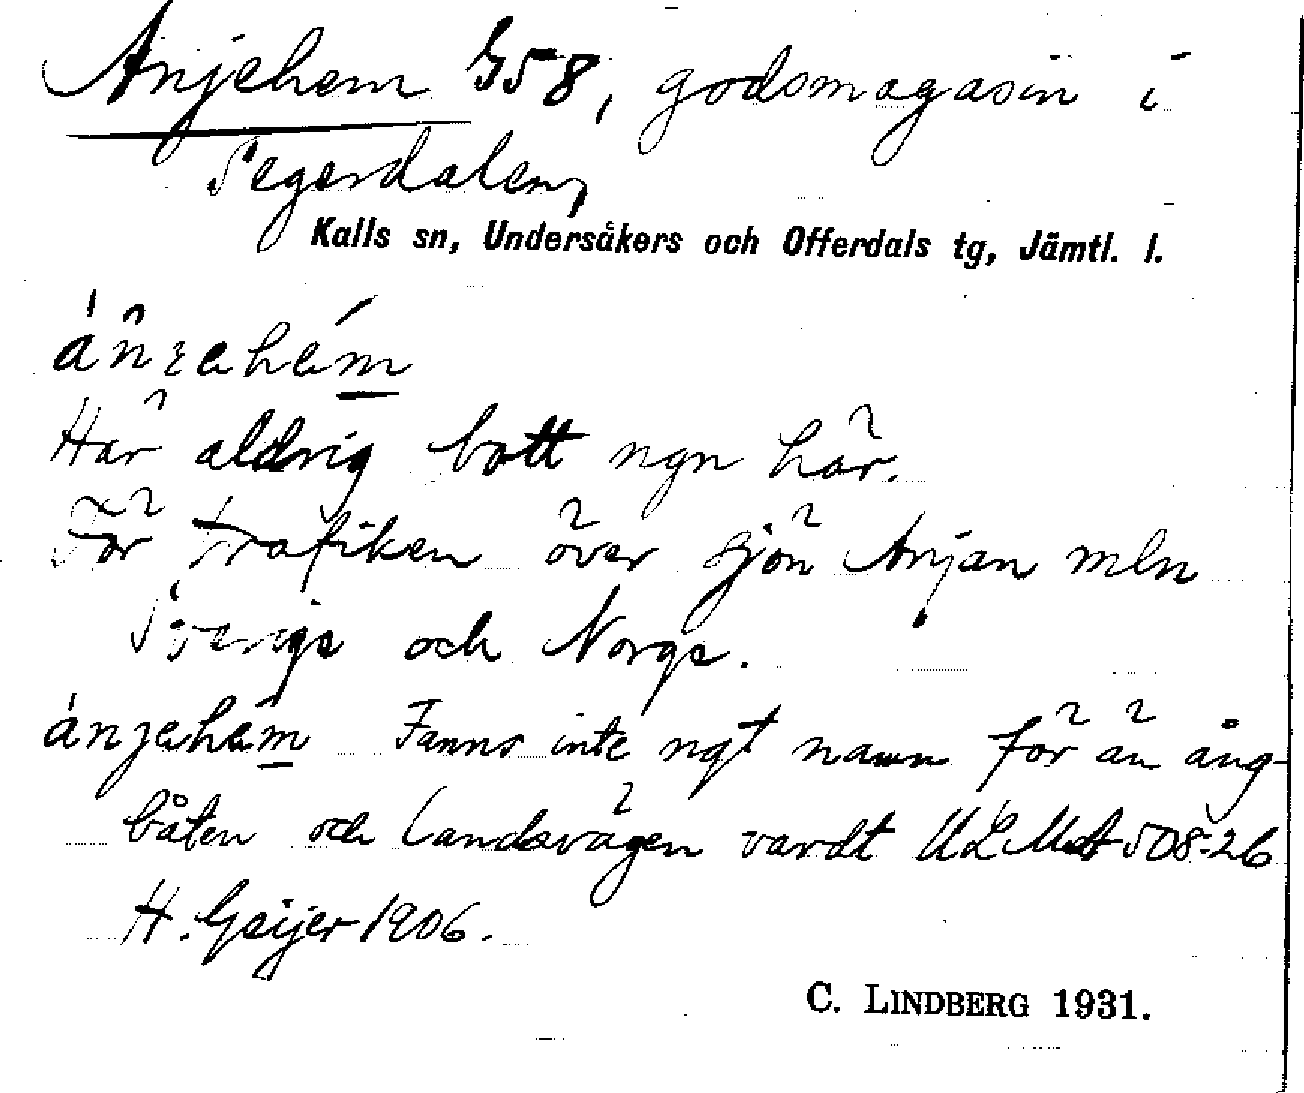 Anjehem G58, godsmagasin i
Segerdalen,
Kalls sn, Undersåkers och Offerdals tg, Jämtl. l.
Här aldrig bott ngn här.
För trafiken över sjön Anjan mln
Sverige och Norge.
ánjehém Fanns inte ngt namn för än ång-
båten och landsvägen vardt ULMA 508:26
H. Geijer 1906.
C. LINDBERG 1931.